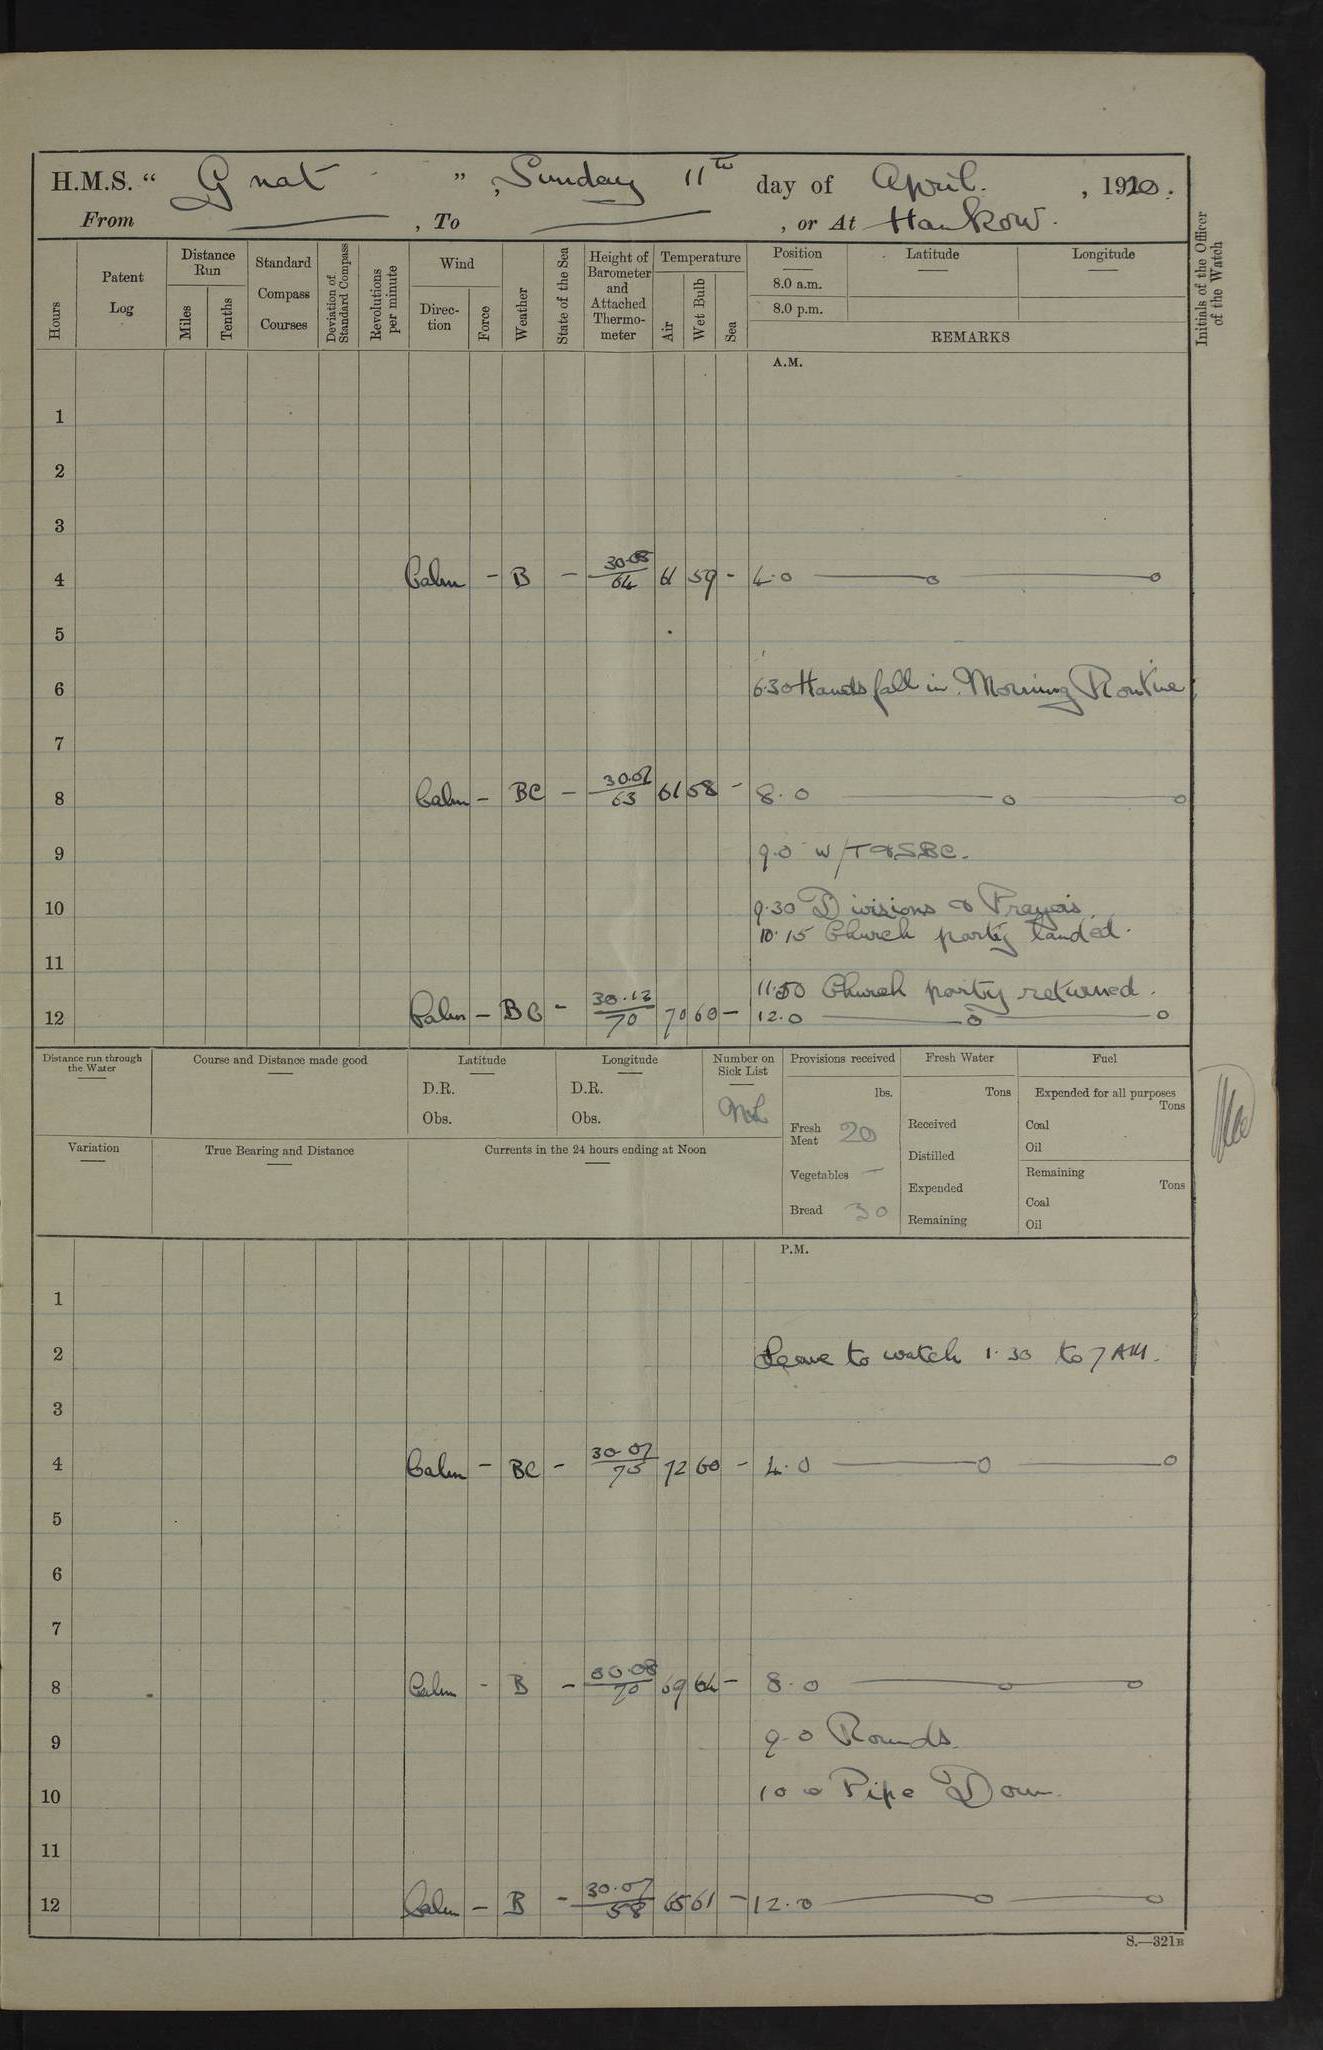 H.M.S. “ Gnat ”, Sunday 11th day of April. , 1920.
From , To , or At Hankow.
Hours
Patent Log
Distance Run
Miles
Tenths
Standard Compass Courses
Deviation of Standard Compass
Revolutions per minute
Wind
Direction
Force
Weather
State of the Sea
Height of Barometer and Attached Thermometer
Temperature
Air
Wet Bulb
Sea
Position
8.0 a.m.
8.0 p.m.
Latitude
Longitude
REMARKS
Initials of the Officer of the Watch
A.M.
1
2
3
4 Calm – B – 30.08/64 61 59 – 4.0
5
6 6.30 Hands fall in. Morning Routine
7
8 Calm – BC – 30.07/63 61 58 – 8.0
9 9.0 W/T & SBC.
10 9.30 Divisions & Prayers.
10.15 Church party landed.
11
11.50 Church party returned.
12 Calm – BC – 30.12/70 70 60 – 12.0
Distance run through the Water
Course and Distance made good
Latitude
D.R.
Obs.
Longitude
D.R.
Obs.
Number on Sick List
Nil
Provisions received
lbs.
Fresh Meat 20
Vegetables –
Bread 30
Fresh Water
Tons
Received
Distilled
Expended
Remaining
Fuel
Expended for all purposes
Tons
Coal
Oil
Remaining
Tons
Coal
Oil
Variation
True Bearing and Distance
Currents in the 24 hours ending at Noon
P.M.
1
2 Leave to watch 1.30 to 7 AM.
3
4 Calm – BC – 30.07/75 72 60 – 4.0
5
6
7
8 Calm – B – 30.08/70 69 64 – 8.0
9 9.0 Rounds.
10 10 0 Pipe Down.
11
12 Calm – B – 30.07/58 65 61 – 12.0
S.—321B